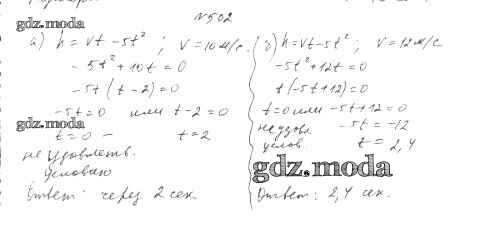 №502
gdz.moda
а) h = vt - 5t² ; v = 10 м/с.
- 5t² + 10t = 0
-5t (t - 2) = 0
-5t = 0 или t - 2 = 0
gdz.moda
t = 0 - t = 2
не удовлетв.
условию
Ответ: через 2 сек.
б) h = vt - 5t² ; v = 12 м/с
-5t² + 12t = 0
t(-5t + 12) = 0
t = 0 или -5t + 12 = 0
не удовл. -5t = -12
услов t = 2,4
gdz.moda
Ответ: 2,4 сек.